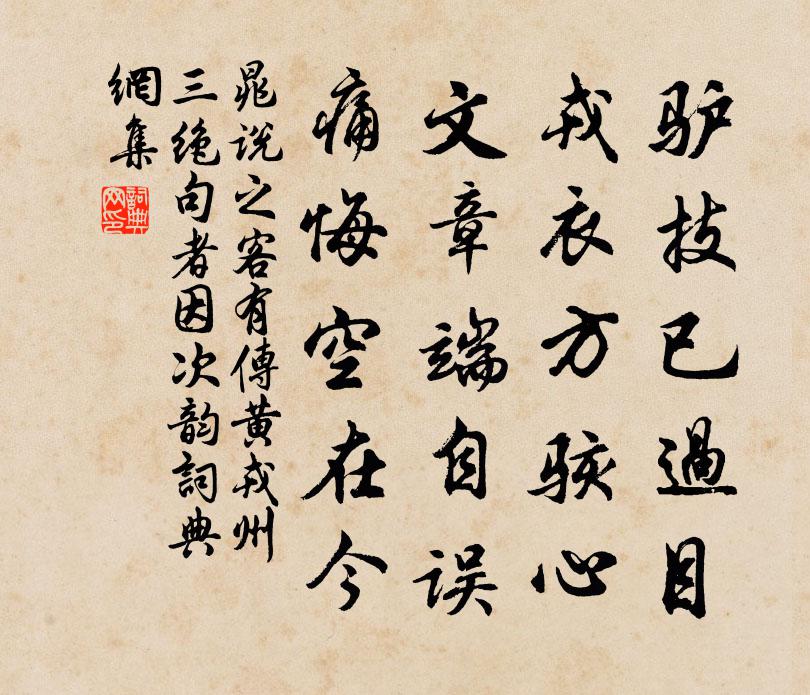 驴技已過目
戎衣方骇心
文章端自误
痛悔空在今
晁说之客有傳黄戎州
三绝句者因次韵詞典
網集
詞典網印